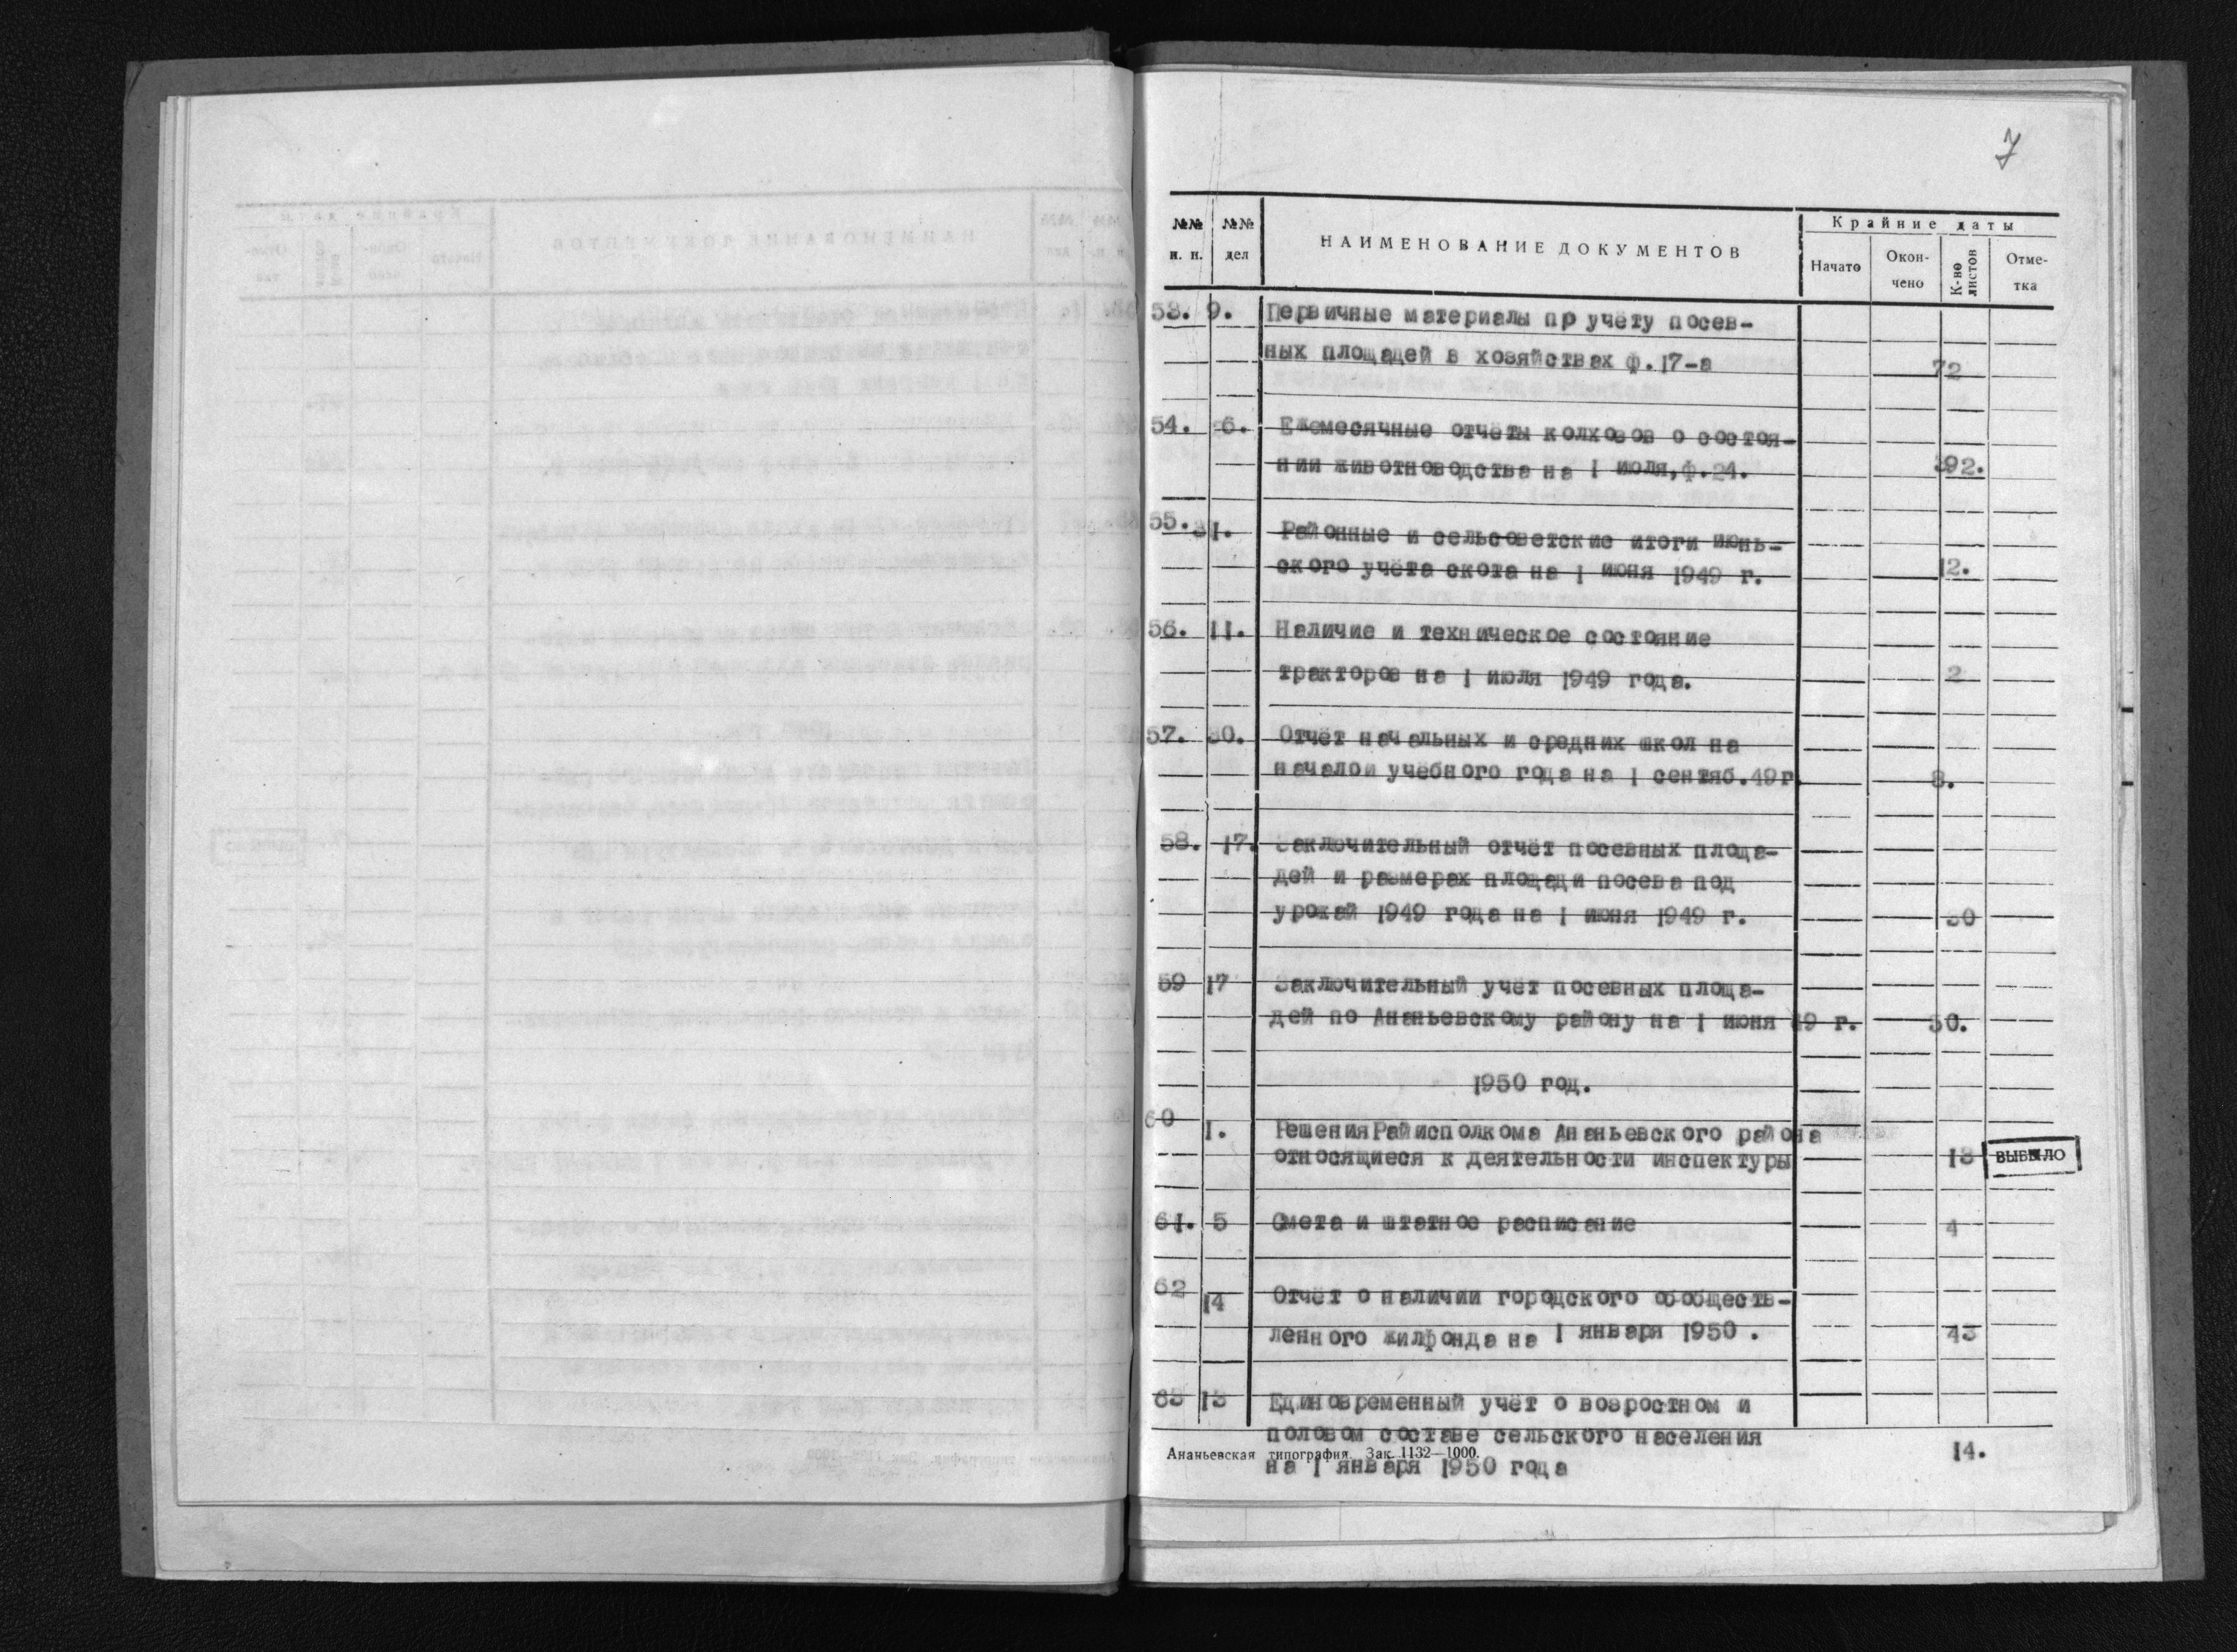 7
№№ п. п. №№ дел НАИМЕНОВАНИЕ ДОКУМЕНТОВ Крайние даты
Начато Окон-чено К-во листов Отме-тка
53. 9. Первичные материалы пр учёту посев-
ных площадей в хозяйствах ф.17-а 72
54. 26. Ежемесячные отчёты колхозов о состоя-
нии животноводства на 1 июля,ф.24. 392.
55. 31. Районные и сельсоветские итоги июнь-
ского учёта скота на 1 июня 1949 г. 12.
56. 11. Наличие и техническое состояние
тракторов на 1 июля 1949 года. 2
57. 30. Отчёт начальных и средних школ на
началои учёбного года на 1 сентяб.49г. 8.
58. 17. Заключительный отчёт посевных площа-
дей и размерах площади посева под
урожай 1949 года на 1 июня 1949 г. 30
59 17 Заключительный учёт посевных площа-
дей по Ананьевскому району на 1 июня 49 г. 30.
1950 год.
60 1. Решения Райисполкома Ананьевского района
относящиеся к деятельности инспектуры 13 ВЫБЫЛО
61. 5 Смета и штатное расписание 4
62 14 Отчёт о наличии городского обобществ-
ленного жилфонда на 1 января 1950. 43
63 13 Единовременный учёт о возростном и
половом составе сельского населения
на 1 января 1950 года 14.
Ананьевская типография. Зак. 1132—1000.